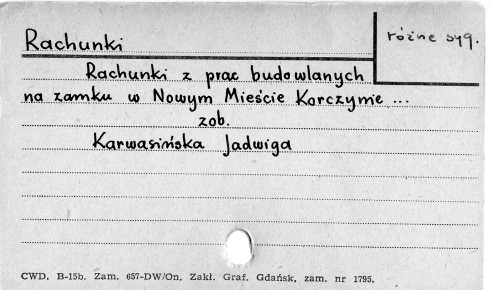 Rachunki
różne syg.
Rachunki z prac budowlanych
na zamku w Nowym Mieście Korczynie ...
zob.
Karwasińska Jadwiga
CWD. B-15b. Zam. 657-DW/On. Zakł. Graf. Gdańsk, zam. nr 1795.